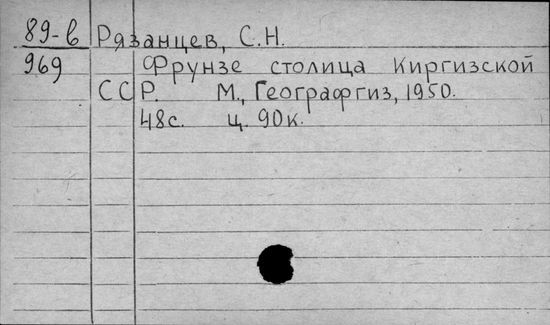 89-в Рязанцев, С.Н.
969 Фрунзе столица Киргизской
ССР. М., Географгиз, 1950.
48с. ц. 90к.